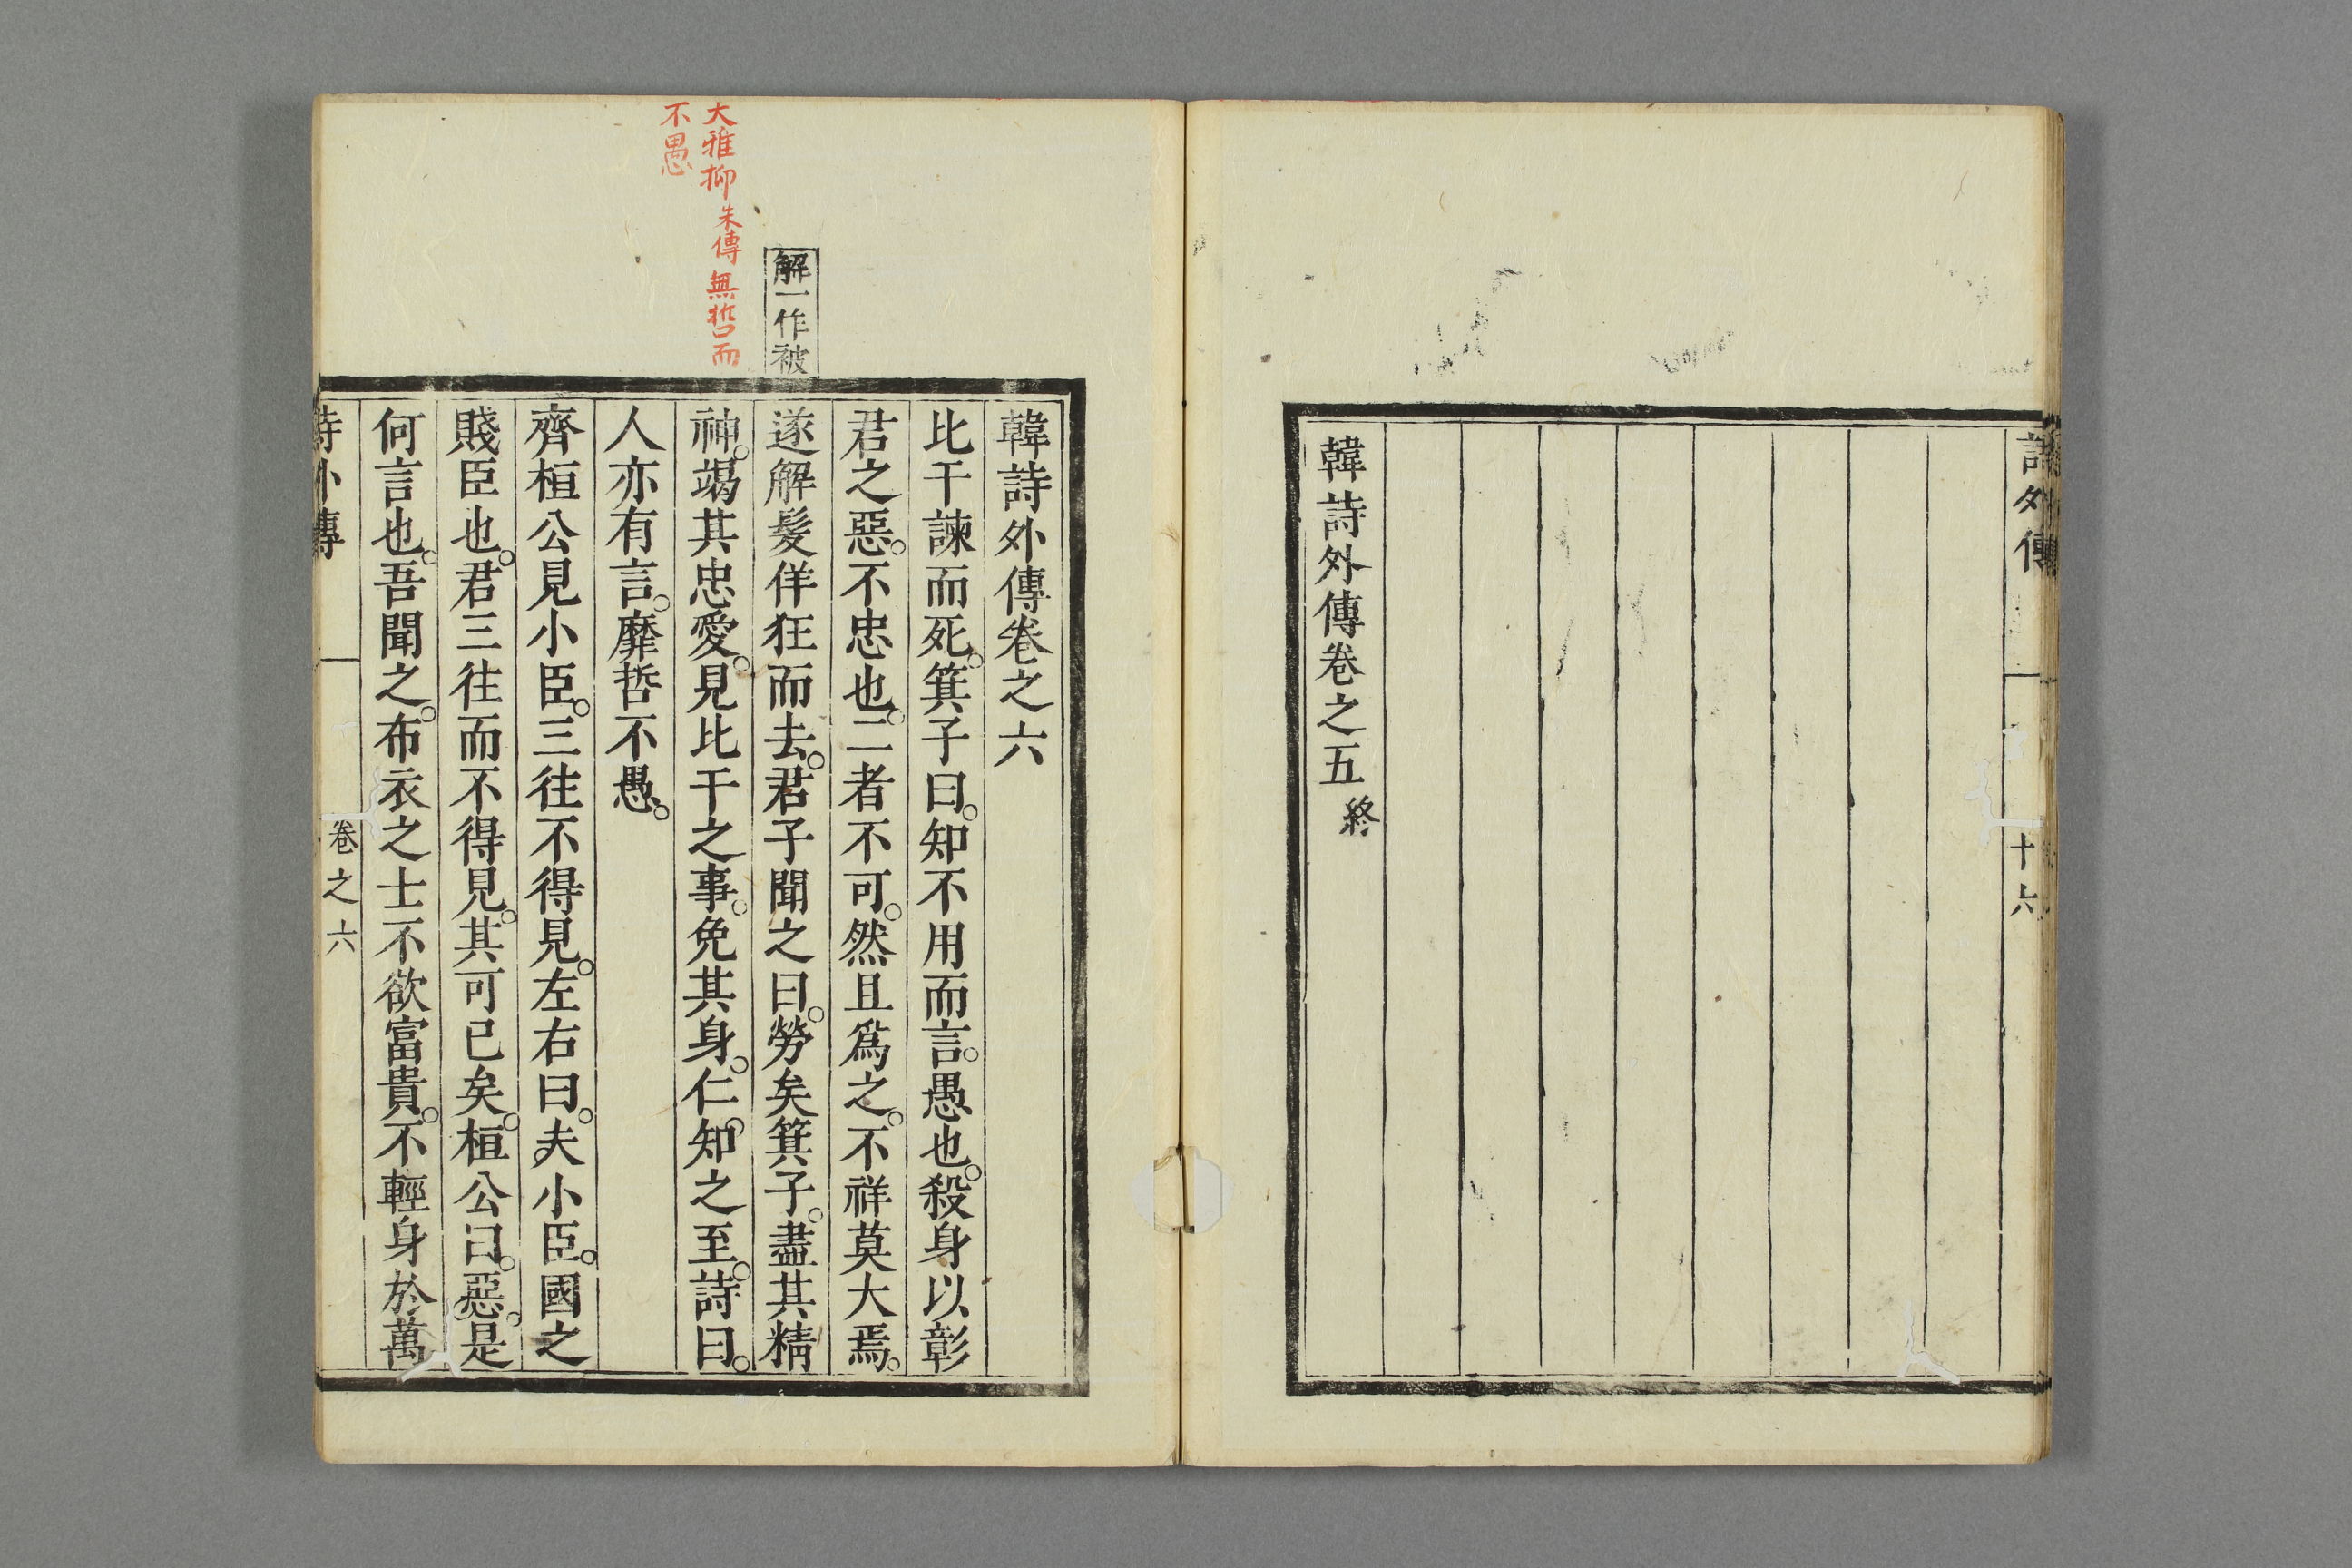 詩外傳
十六
韓詩外傳卷之五終
大雅抑朱傳無哲而
不愚
解一作被
韓詩外傳卷之六
比干諫而死。箕子曰。知不用而言。愚也。殺身以彰
君之惡。不忠也。二者不可。然且爲之。不祥莫大焉。
遂解髮佯狂而去。君子聞之曰。勞矣箕子。盡其精
神。竭其忠愛。見比干之事。免其身。仁知之至。詩曰。
人亦有言。靡哲不愚。
齊桓公見小臣。三往不得見。左右曰。夫小臣。國之
賤臣也。君三往而不得見。其可已矣。桓公曰。惡。是
何言也。吾聞之。布衣之士不欲富貴。不輕身於萬
詩外傳
卷之六